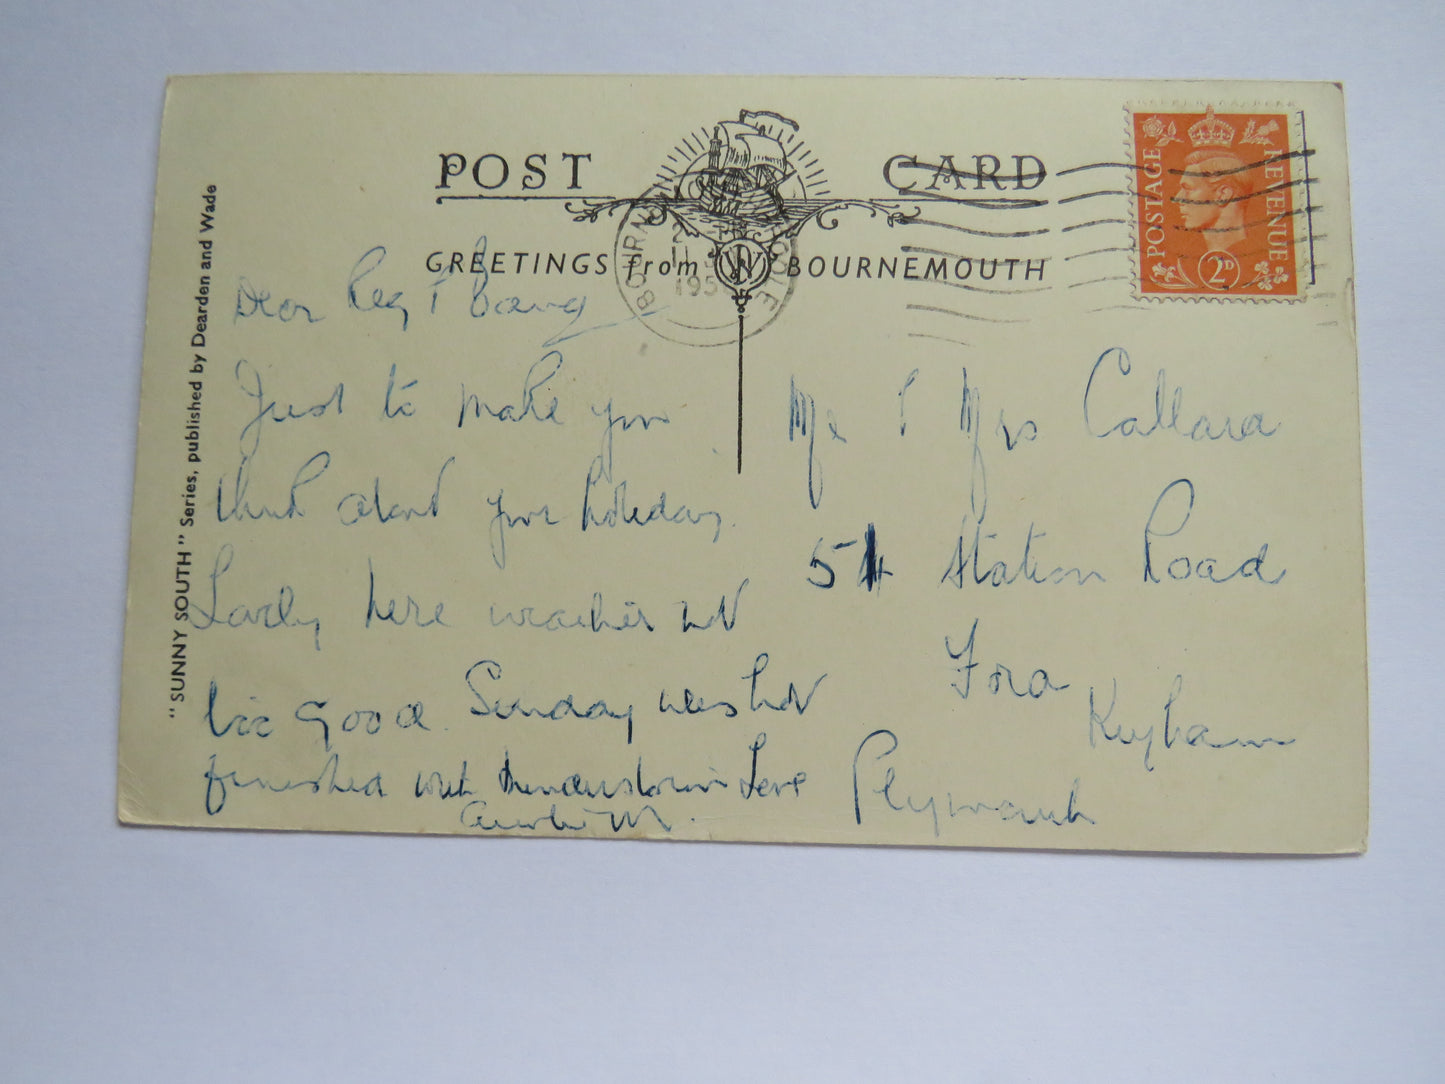 POST CARD
GREETINGS from BOURNEMOUTH
W
"SUNNY SOUTH" Series, published by Dearden and Wade
POSTAGE REVENUE
2D
BOURNEMOUTH POOLE
195
Dear Reg &
Just to make you
think about your holiday.
Lovely here weather not
too good. Sunday
finished with thunderstorm Love
M.
Mr & Mrs Callara
54 Station Road
Ford
Keyham
Plymouth